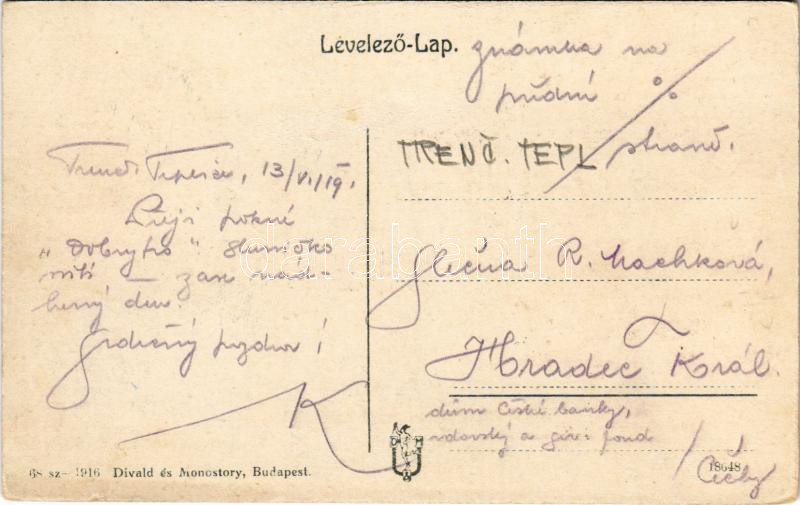 Levelező-Lap.
známka na
přední %
straně.
TRENČ. TEPL
Trenč. Teplice, 13/VI. 19.
pěkné
" Dobrytro " Sluničko
svítí — zas nád-
herný den.
Srdečný pozdrav!
K
Slečna R. Machková,
Hradec Král.
dům České banky,
a fond
Čechy
68 sz— 1916 Divald és Monostory, Budapest.
18648
darabanth